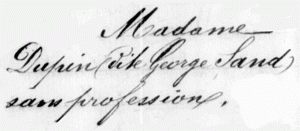 Madame
Dupin (dite George Sand)
sans profession.